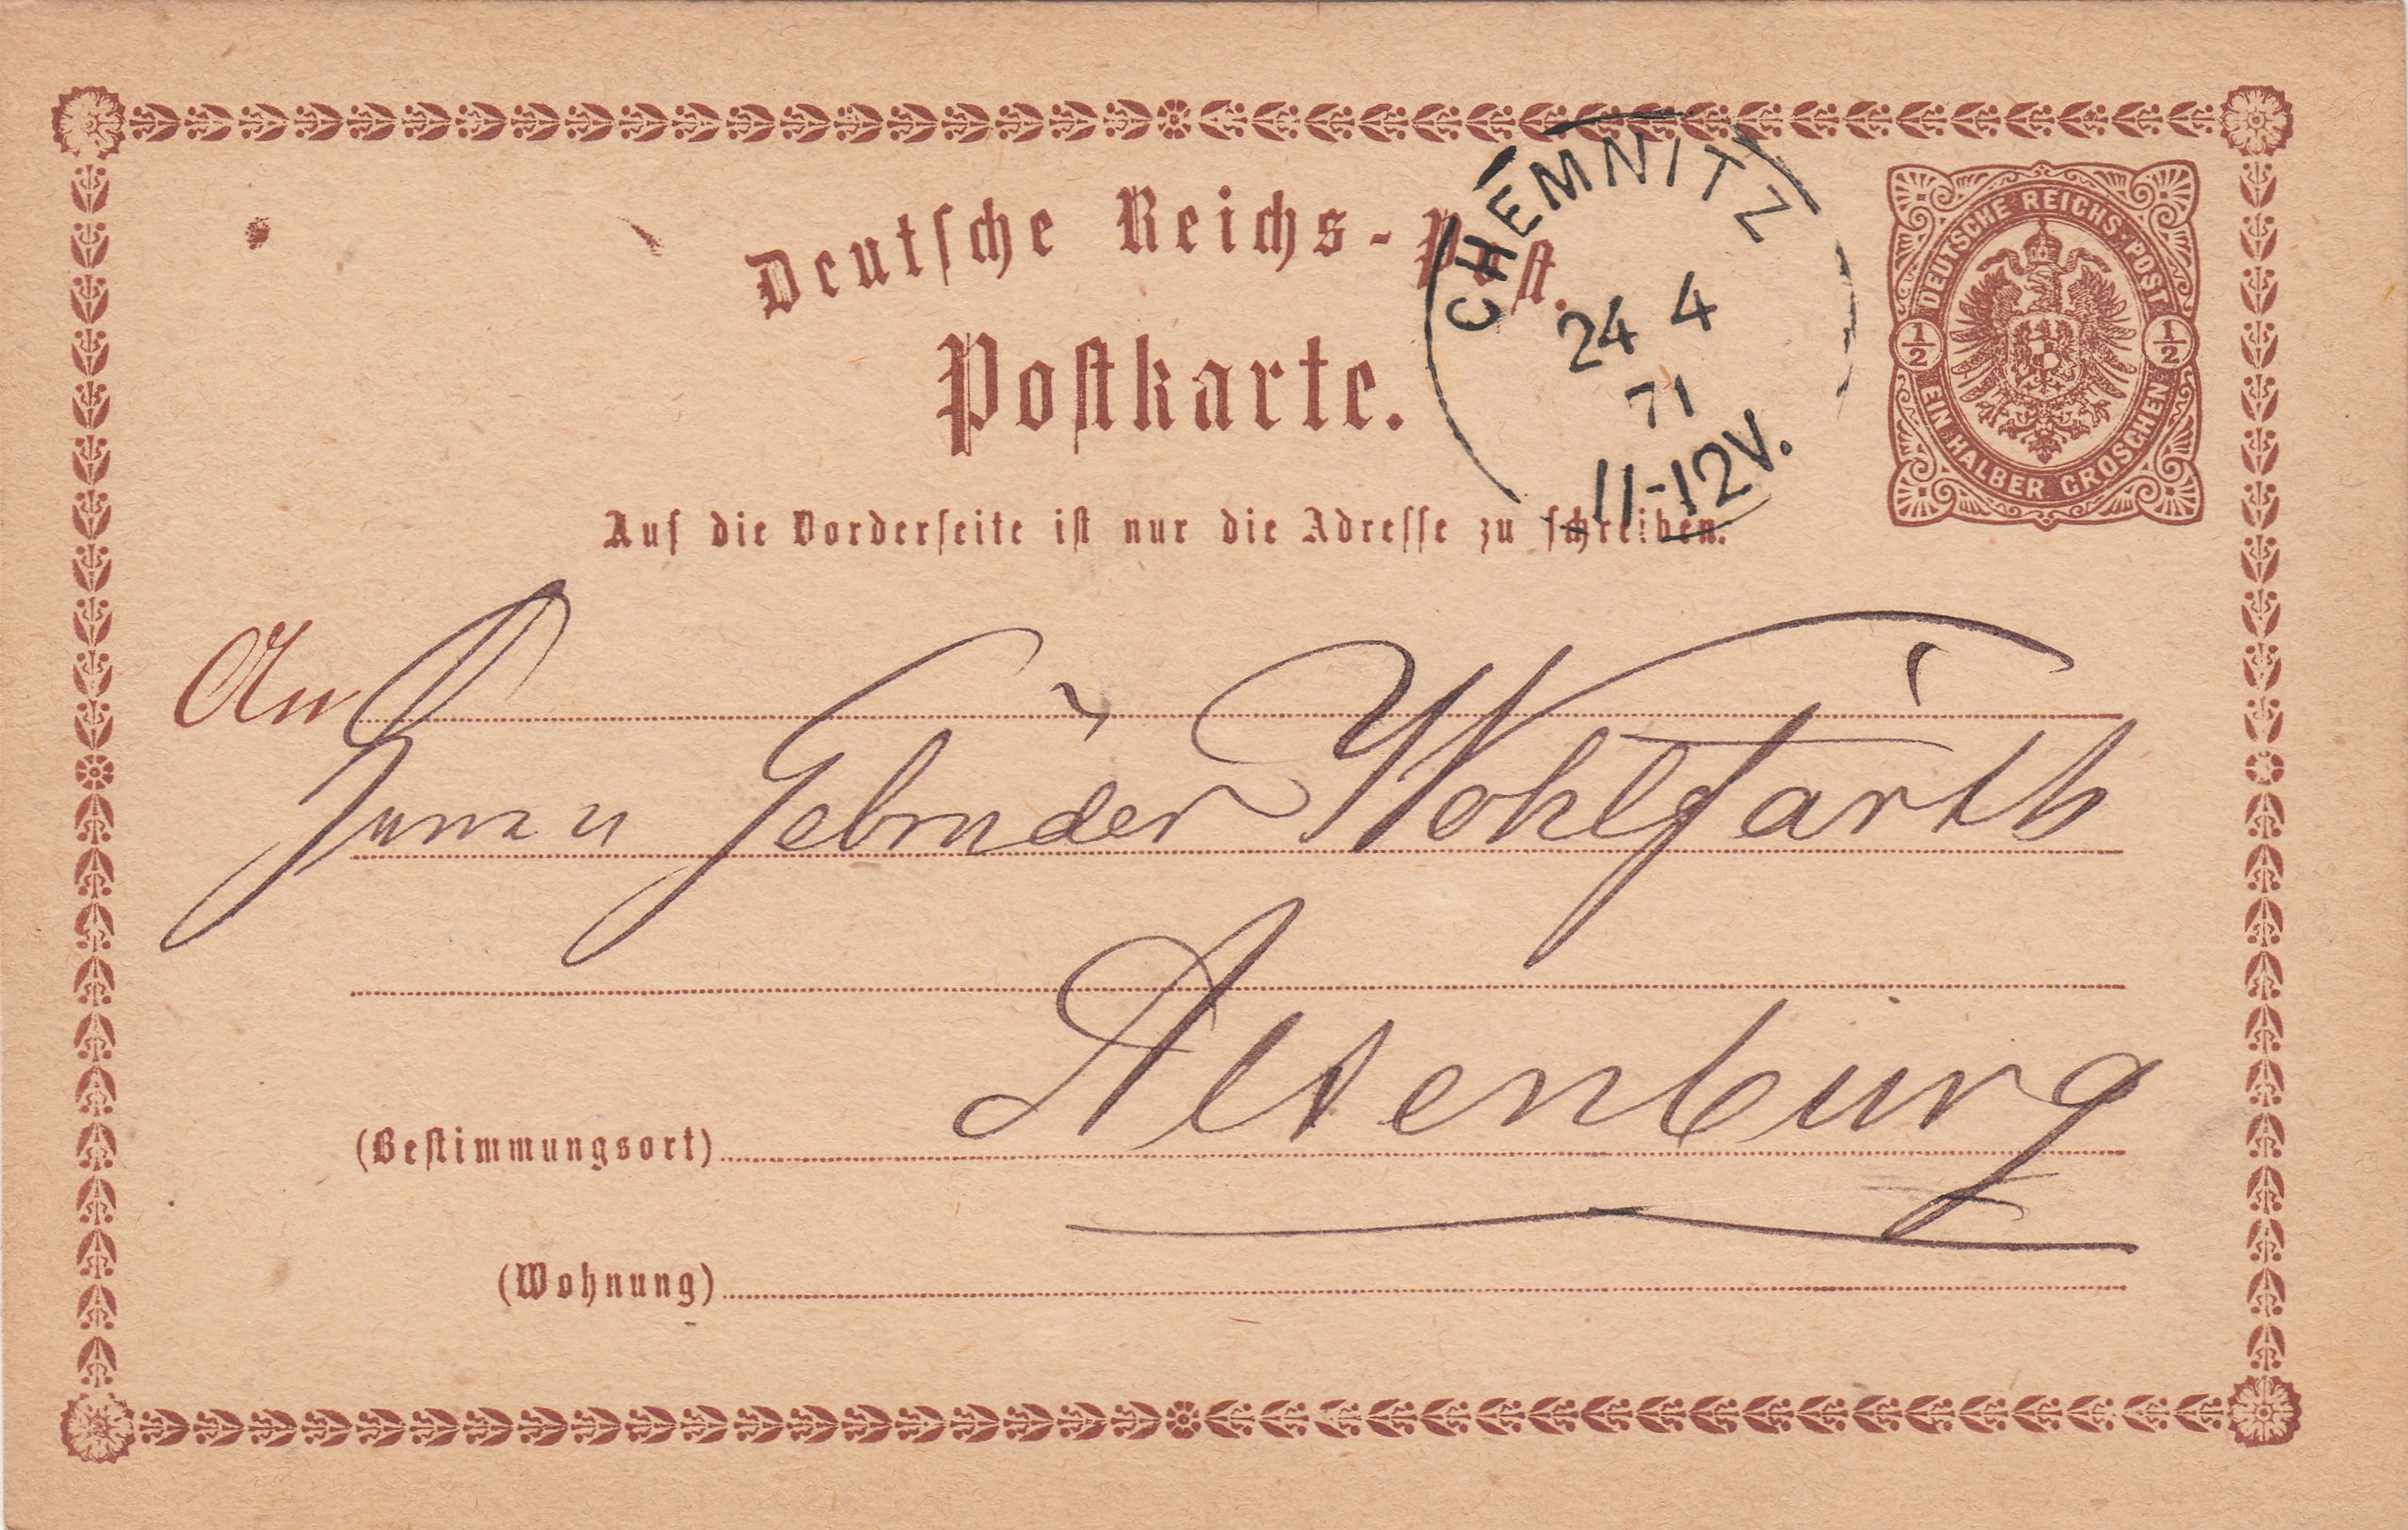 Deutsche Reichs-Post.
Postkarte.
CHEMNITZ
24 4
71
11-12V.
DEUTSCHE REICHS-POST
1/2 1/2
EIN HALBER GROSCHEN
Auf die Vorderseite ist nur die Adresse zu schreiben.
An
Gebrüder Wohlfarth
Altenburg
(Bestimmungsort)
(Wohnung)